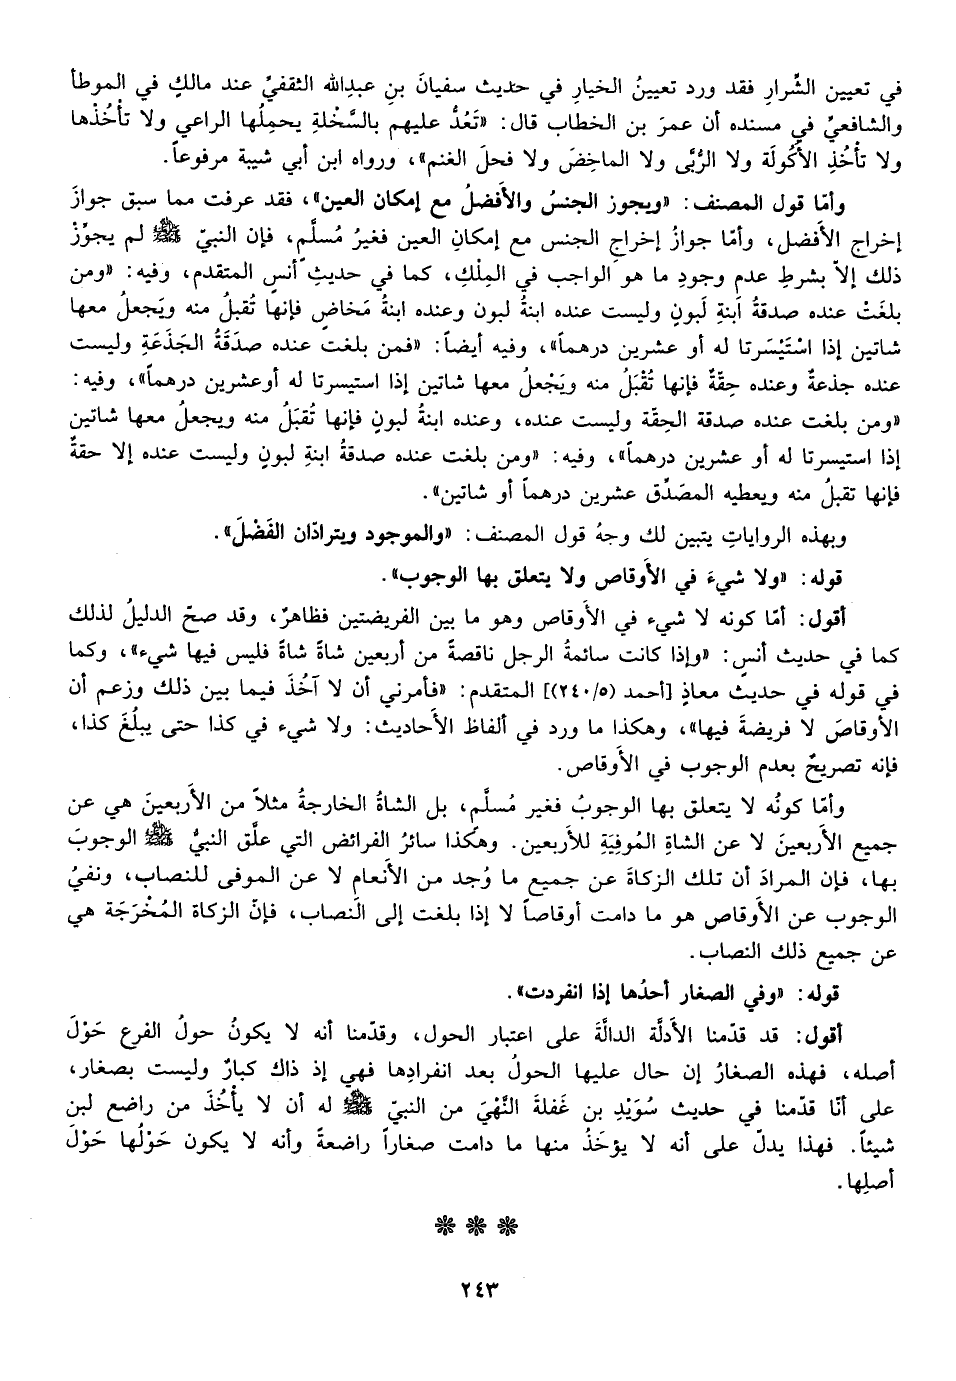 في تعيين الشِّرارِ فقد ورد تعيينُ الخيارِ في حديث سفيانَ بنِ عبدالله الثقفيِّ عند مالكٍ في الموطأ
والشافعيِّ في مسنده أن عمرَ بن الخطاب قال: «تَعُدُّ عليهم بالسَّخْلةِ يحمِلُها الراعي ولا تأْخُذْها
ولا تأْخُذِ الأَكُولَة ولا الرُّبَّى ولا الماخِضَ ولا فحلَ الغنم»، ورواه ابن أبي شيبة مرفوعاً.
وأمّا قول المصنف: «ويجوز الجنسُ والأفضلُ مع إمكان العين»، فقد عرفت مما سبق جوازَ
إخراج الأفضل، وأمّا جوازُ إخراجِ الجنس مع إمكانِ العين فغيرُ مُسلَّم، فإن النبيّ ﷺ لم يجوِّزْ
ذلك إلاّ بشرطِ عدمِ وجودِ ما هو الواجب في المِلْكِ، كما في حديثِ أنسٍ المتقدم، وفيه: «ومن
بلغَتْ عنده صدقةُ ابنةِ لَبونٍ وليست عنده ابنةُ لبون وعنده ابنةُ مَخاضٍ فإنها تُقبلُ منه ويَجعلُ معها
شاتين إذا اسْتَيْسَرتا له أو عشرين درهماً»، وفيه أيضاً: «فمن بلغت عنده صدَقَةُ الجَذَعَةِ وليست
عنده جذعةٌ وعنده حِقّةٌ فإنها تُقْبَلُ منه ويَجْعلُ معها شاتين إذا استيسرتا له أوعشرين درهماً»، وفيه:
«ومن بلغت عنده صدقة الحِقّة وليست عنده، وعنده ابنةُ لبونٍ فإنها تُقبَلُ منه ويجعلُ معها شاتين
إذا استيسرتا له أو عشرين درهماً»، وفيه: «ومن بلغت عنده صدقةُ ابنةِ لبونٍ وليست عنده إلا حقةٌ
فإنها تقبلُ منه ويعطيه المصَدِّق عشرين درهماً أو شاتين».
وبهذه الرواياتِ يتبين لك وجهُ قول المصنف: «والموجود ويترادّان الفَضْلَ».
قوله: «ولا شيءَ في الأوقاص ولا يتعلق بها الوجوب».
أقول: أمّا كونه لا شيء في الأَوقاص وهو ما بين الفريضتين فظاهرٌ، وقد صحّ الدليلُ لذلك
كما في حديث أنس: «وإذا كانت سائمةُ الرجل ناقصةً من أربعين شاةً شاةً فليس فيها شيء»، وكما
في قوله في حديث معاذٍ [أحمد (٥/ ٢٤٠)] المتقدم: «فأمرني أن لا آخُذَ فيما بين ذلك وزعم أن
الأوقاصَ لا فريضةَ فيها»، وهكذا ما ورد في ألفاظ الأحاديث: ولا شيء في كذا حتى يبلُغَ كذا،
فإنه تصريحٌ بعدم الوجوب في الأَوقاص.
وأمّا كونُه لا يتعلق بها الوجوبُ فغير مُسلَّم، بل الشاةُ الخارجةُ مثلاً من الأَربعينَ هي عن
جميع الأَربعينَ لا عن الشاةِ المُوفِيَةِ للأَربعين. وهكذا سائرُ الفرائض التي علَّق النبيُّ ﷺ الوجوبَ
بها، فإن المرادَ أن تلك الزكاةَ عن جميعِ ما وُجد من الأَنعامِ لا عن الموفى للنصاب، ونفيُ
الوجوب عن الأَوقاص هو ما دامت أوقاصاً لا إذا بلغت إلى النصاب، فإنّ الزكاة المُخْرَجَة هي
عن جميع ذلك النصاب.
قوله: «وفي الصغار أحدُها إذا انفردت».
أقول: قد قدّمنا الأَدلّة الدالّةَ على اعتبار الحول، وقدّمنا أنه لا يكونُ حولُ الفرع حَوْلَ
أصله، فهذه الصغارُ إن حال عليها الحولُ بعد انفرادِها فهي إذ ذاك كبارٌ وليست بصغار،
على أنّا قدّمنا في حديث سُوَيْدِ بن غَفلةَ النَّهْيَ من النبيّ ﷺ له أن لا يأْخُذَ من راضع لبن
شيئاً. فهذا يدلّ على أنه لا يؤخَذُ منها ما دامت صغاراً راضعةً وأنه لا يكون حَوْلُها حَوْلَ
أصلِها.
٢٤٣